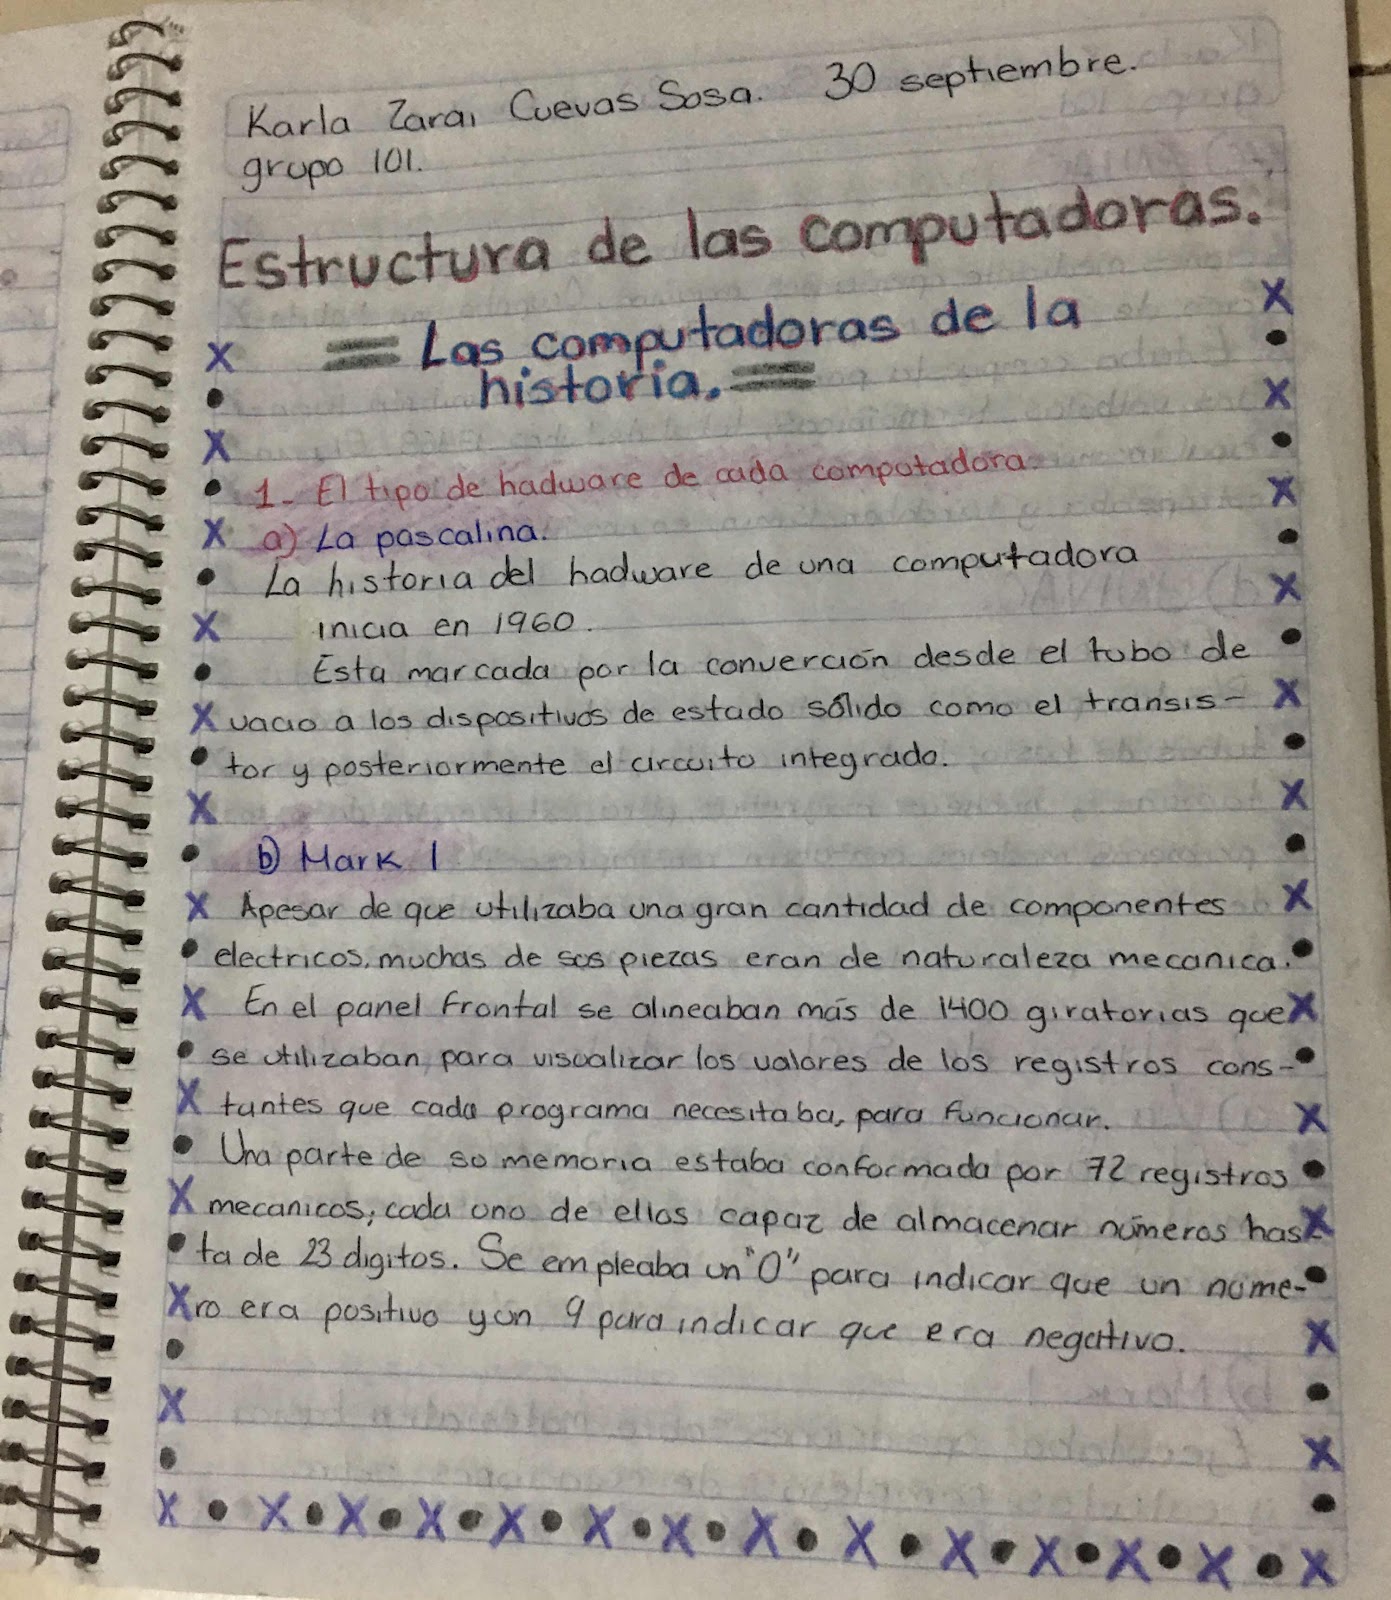 Karla Zarai Cuevas Sosa. 30 septiembre.
grupo 101.
Estructura de las computadoras.
= Las computadoras de la
historia. =
1- El tipo de hadware de cada computadora.
a) La pascalina.
La historia del hadware de una computadora
inicia en 1960.
Esta marcada por la converción desde el tubo de
vacio a los dispositivos de estado sólido como el transis-
tor y posteriormente el circuito integrado.
b) Mark 1
Apesar de que utilizaba una gran cantidad de componentes
electricos, muchas de sus piezas eran de naturaleza mecanica.
En el panel frontal se alineaban más de 1400 giratorias que
se utilizaban para visualizar los valores de los registros cons-
tantes que cada programa necesitaba, para funcionar.
Una parte de su memoria estaba conformada por 72 registros
mecanicos, cada uno de ellos capaz de almacenar números has-
ta de 23 digitos. Se empleaba un "0" para indicar que un núme-
ro era positivo y un 9 para indicar que era negativo.